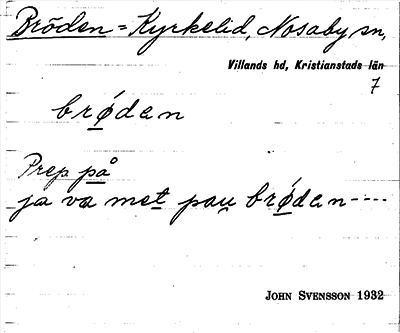 Bröden = Kyrkelid, Nosaby sn,
Villands hd, Kristianstads län
7
brǿdan
Prep på
ja va met pau brǿdan----
JOHN SVENSSON 1932